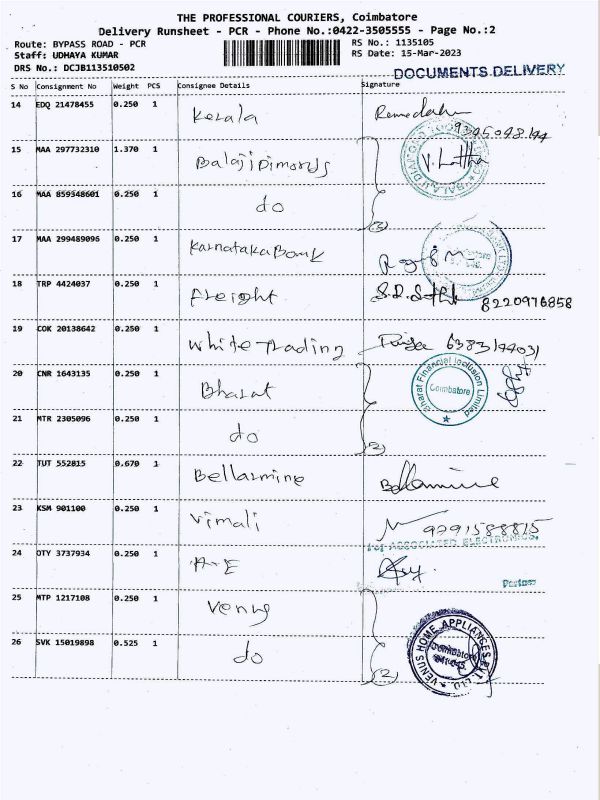 THE PROFESSIONAL COURIERS, Coimbatore
Delivery Runsheet - PCR - Phone No.:0422-3505555 - Page No.:2
Route: BYPASS ROAD - PCR
RS No.: 1135105
Staff: UDHAYA KUMAR
RS Date: 15-Mar-2023
DRS No.: DCJB113510502
DOCUMENTS.DELIVERY
S No Consignment No Weight PCS Consignee Details Signature
14 EDQ 21478455 0.250 1 Kerala
15 MAA 297732310 1.370 1 Balaji Dimonds V. Lattha
16 MAA 859348601 0.250 1 do
(2)
17 MAA 299489096 0.250 1 Karnataka Bank
18 TRP 4424037 0.250 1 Freight 8220976858
19 COK 20138642 0.250 1 White Trading
20 CNR 1643135 0.250 1 Bharat
Bharat Financial Inclusion Limited
Coimbatore
21 MTR 2305096 0.250 1 do
(2)
22 TUT 552815 0.670 1 Bellarmine Bellarmine
23 KSM 901100 0.250 1 Vimali
For ASSOCIATED ELECTRONICS,
24 OTY 3737934 0.250 1 A-E
Partner
25 MTP 1217108 0.250 1 Venus
26 SVK 15019898 0.525 1 do
(2)
VENUS HOME APPLIANCES PVT. LTD
Coimbatore